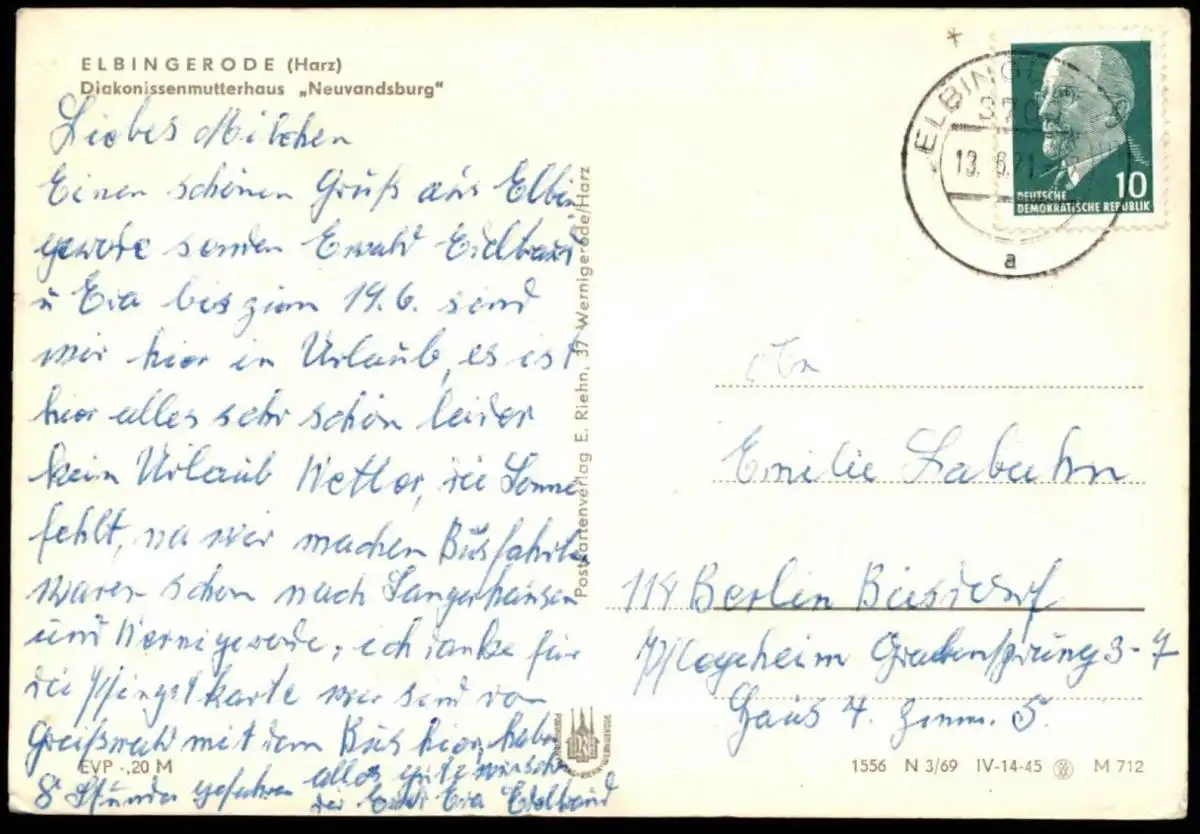 ELBINGERODE (Harz)
Diakonissenmutterhaus „Neuvandsburg"
Liebes Milchen
Einen schönen Gruß aus Elbin
gerode senden Ewald Edeltraud
u Eva bis zum 19.6. sind
wir hier in Urlaub, es ist
hier alles sehr schön leider
kein Urlaub Wetter, die Sonne
fehlt, na wir machen Busfahrten
waren schon nach Sangerhausen
und Wernigerode, ich danke für
die Pfingstkarte wir sind von
Greifswald mit dem Bus hier, haben
8 Stunden gefahren alles gute wünschen
dir Eva Edeltraud
EVP -,20 M
Postkartenverlag E. Riehn, 37 Wernigerode/Harz
ELBINGERODE
3703
13. 6.71
a
DEUTSCHE
DEMOKRATISCHE REPUBLIK
10
An
Emilie Labuhn
114 Berlin Biesdorf
Pflegeheim Grabensprung 3-7
Haus 4. Zimm. 5.
1556 N 3/69 IV-14-45 M 712